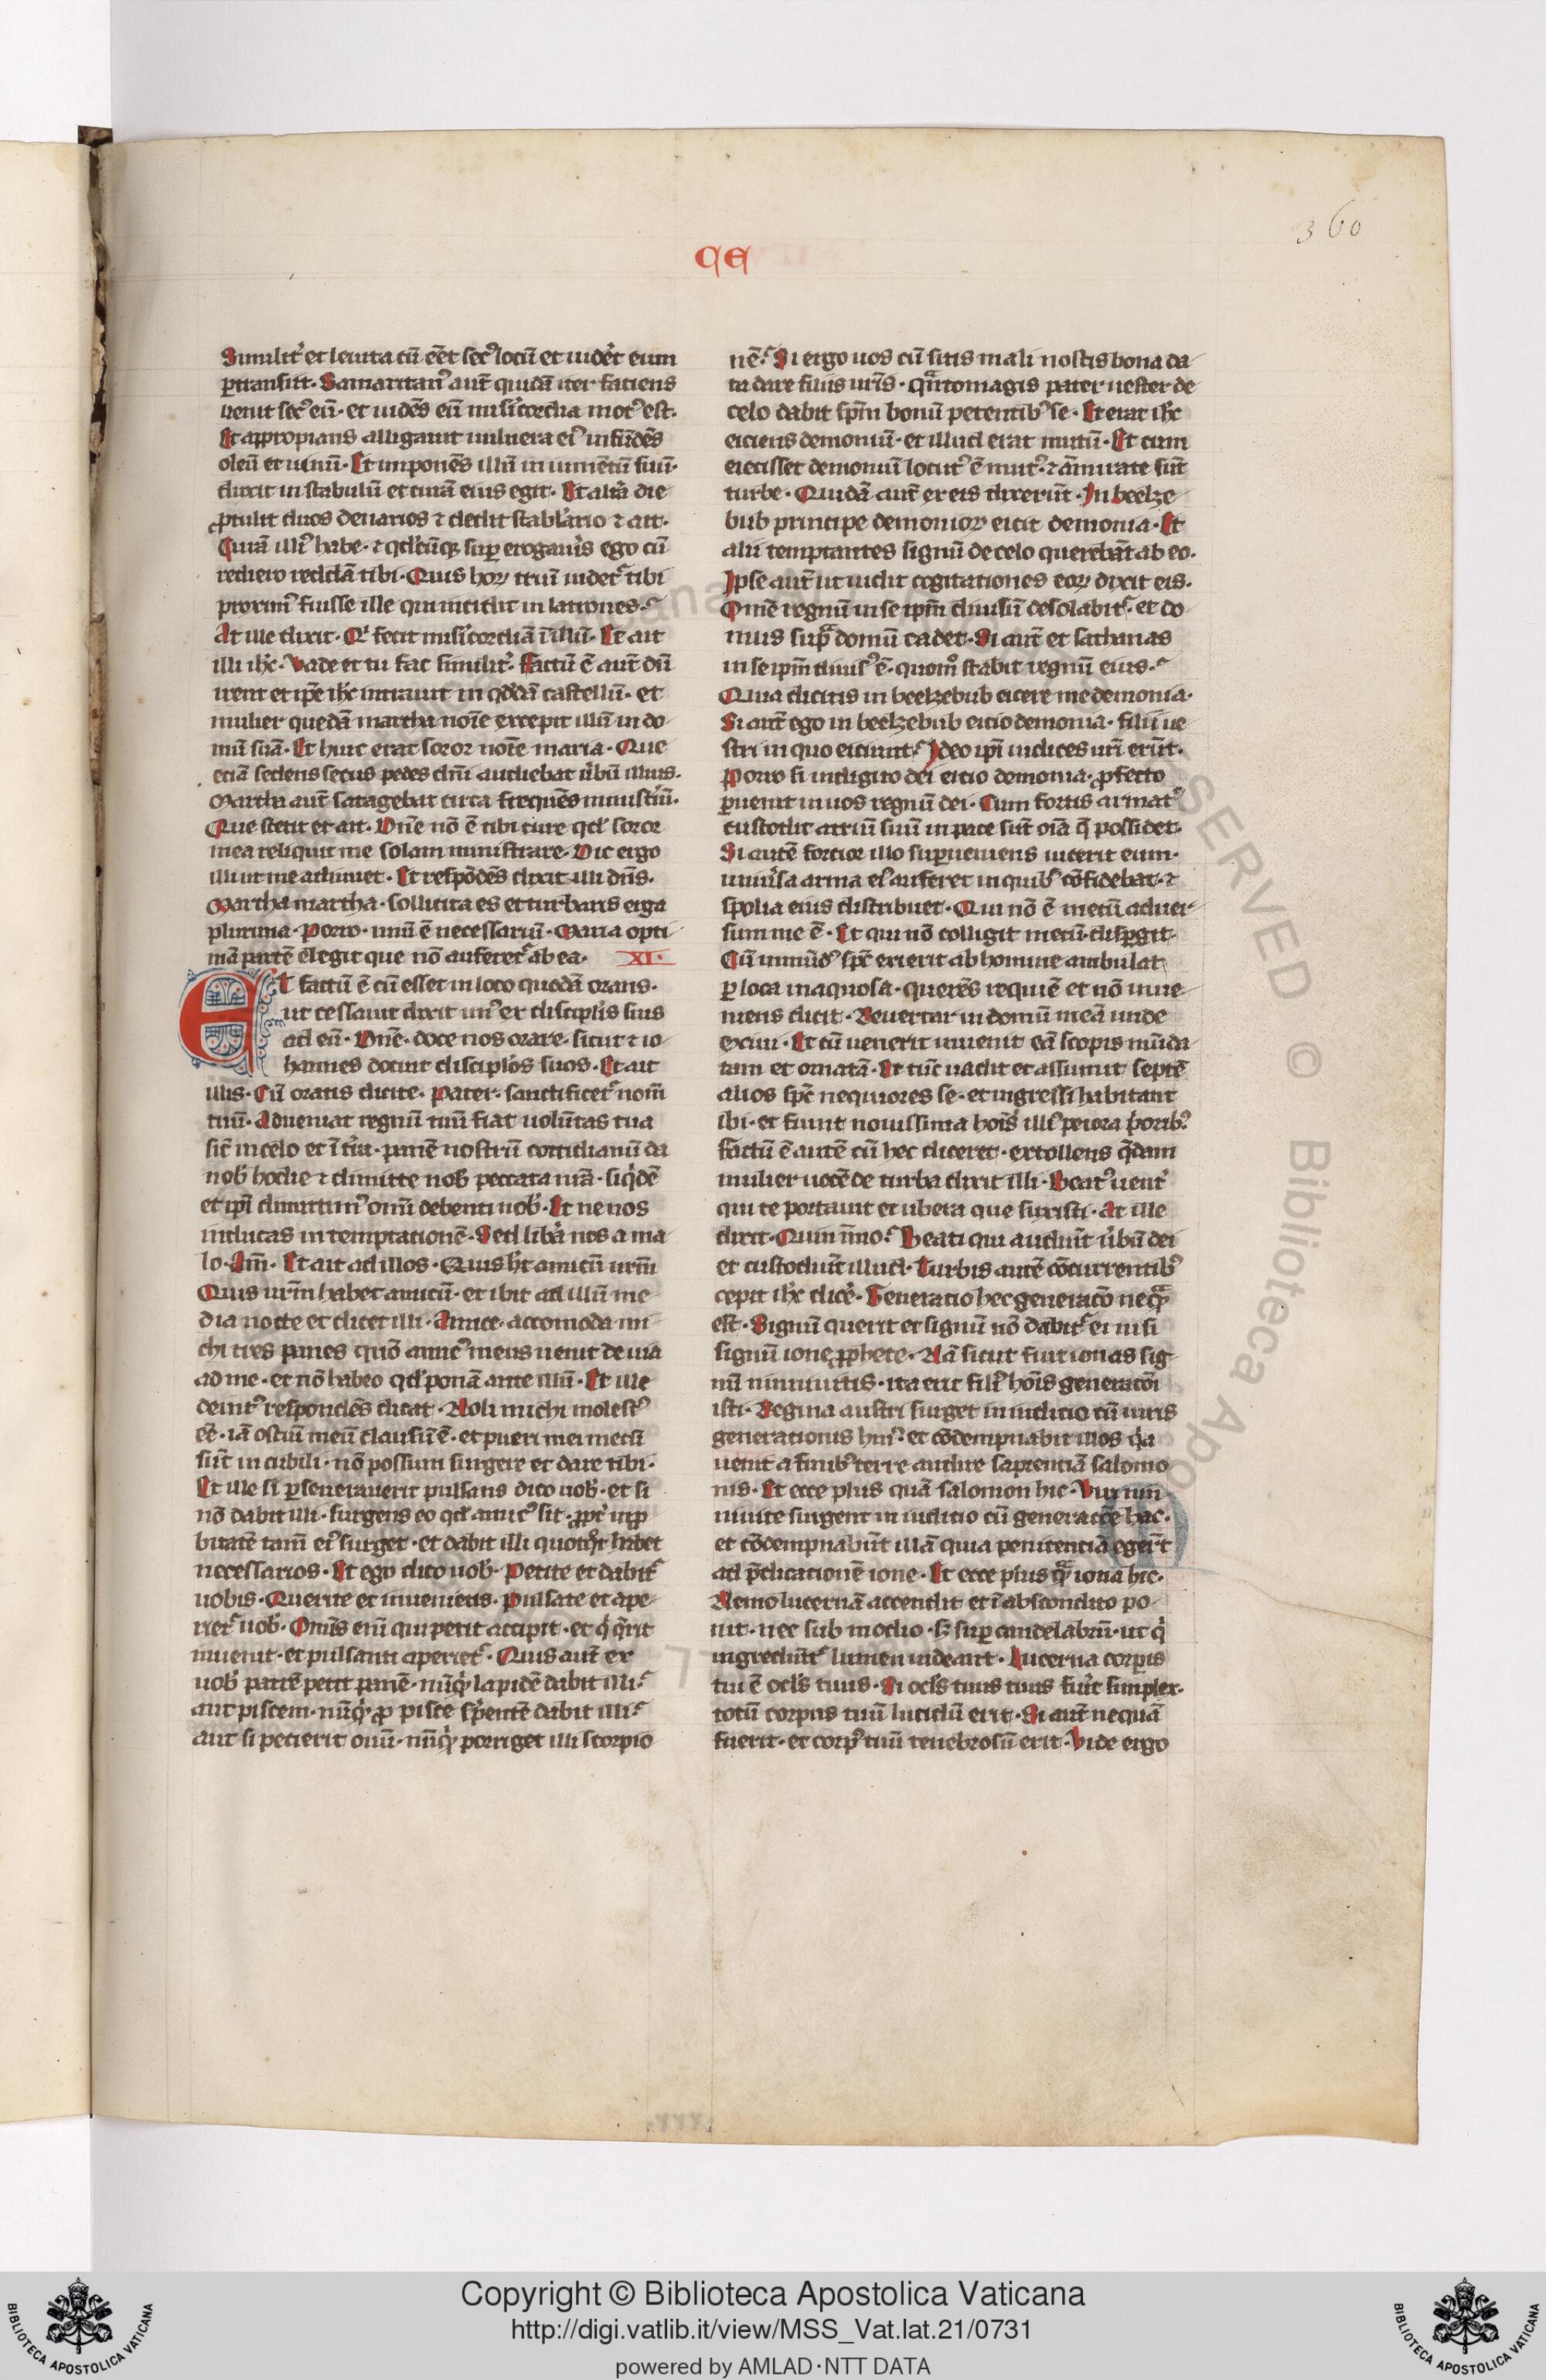 360
CE
Similit᷑ et leuita cū eēt secꝰ locū et uidēt eum
ꝑtransiit. Samaritanꝰ aut̄ quidā iter faciens
uenit secꝰ eū. et uidēs eū mis̄icordia motꝰ est.
Et appropians alligauit uulnera eiꝰ infūdēs
oleū et uinū. Et imponēs illū in iumētū suū.
duxit in stabulū et curā eius egit. Et alt̄a die
ꝓtulit duos denarios ⁊ dedit stabl̓ario ⁊ ait.
Curā illiꝰ habe. ⁊ qd̓cūqꝫ suꝑ erogaūis ego cū
rediero reddā tibi. Quis hoꝝ triū uidet᷑ tibi
proximꝰ fuisse ille qui incidit in latrones.
At ille dixit. Qⁱ fecit mis̄icordiā ī illū. Et ait
illi ih̄c. Vade et tu fac similit᷑. Factū ē aut̄ dū
irent et ip̄e ih̄c intrauit in qd̓dā castellū. et
mulier quedā martha noīe excepit illū in do
mū suā. Et huic erat soror noīe maria. Que
eciā sedens secus pedes dn̄i audiebat ūbū illius.
Martha aut̄ satagebat circa freqūēs ministīū.
Que stetit et ait. Dn̄e nō ē tibi cure qd̓ soror
mea reliquit me solam ministrare. Dic ergo
illi ut me adiuuet. Et respōdēs dixit illi dn̄s.
Martha martha. sollicita es et turbaris erga
plurima. Porro. unū ē necessariū. Maria opti
mā partē elegit que nō auferet᷑ ab ea. XI.
Et factū ē cū esset in loco quodā orans.
ut cessauit dixit unꝰ ex discipl̓is suis
ad eū. Dn̄e. doce nos orare. sicut ⁊ io
hannes docuit discipl̓os suos. Et ait
illis. Cū oratis dicite. Pater. sanctificet᷑ nom̄
tuū. Adueniat regnū tuū fiat uolūtas tua
sic̄ in celo et ī t̄ra. panē nostrū cottidianū da
nob̓ hodie ⁊ dimitte nob̓ peccata nr̄a. siqⁱdē
et ip̄i dimittimꝰ om̄i debenti nob̓. Et ne nos
inducas in temptationē. Sed lib̄a nos a ma
lo. Am̄. Et ait ad illos. Quis hēt amicū ur̄m
Quis ur̄m habet amicū. et ibit ad illū me
dia nocte et dicet illi. Amice. accomoda mi
chi tres panes qm̄ō amicꝰ meus uenit de uia
ad me. et nō habeo qd̓ ponā ante illū. Et ille
deintꝰ respondēs dicat. Noli michi molestꝰ
eē. iā ostiū meū clausū ē. et pueri mei mecū
sūt in cubili. nō possum surgere et dare tibi.
Et ille si ꝑseuerauerit pulsans dico uob̓. et si
nō dabit illi. surgens eo qd̓ amicꝰ sit. ꝓpt̄ inꝓ
bitatē tam̄ eiꝰ surget. et dabit illi quotqͦt habet
necessarios. Et ego dico uob̓. Petite et dabit᷑
uobis. Querite et inuenietis. Pulsate et ape
riet᷑ uob̓. Omīs eni qui petit accipit. et qⁱ qᵉrit
inuenit. et pulsanti aperiet᷑. Quis aut̄ ex
uob̓ patrē petit panē. nūqⁱd lapidē dabit illi.
aut piscem. nūqⁱd ꝓ pisce s̄pentē dabit illi.
aut si petierit ouū. nūqⁱd porriget illi scorpio
nē. Si ergo uos cū sitis mali nostis bona da
ta dare filiis ur̄is. qᵃnto magis pater uester de
celo dabit sp̄m bonū petentibꝰ se. Et erat ih̄c
eiciens demoniū. et illud erat mutū. Et cum
eiecisset demoniū locutꝰ ē mutꝰ. ⁊ am̄irate sūt
turbe. Quidā aut̄ ex eis dixerūt. In beelze
bub principe demonioꝝ eicit demonia. Et
alii temptantes signū de celo querebāt ab eo.
Ipse aut̄ ut uidit cogitationes eoꝝ dixit eis.
Om̄e regnū in se ip̄m diuisū desolabit᷑. et do
mus supᵃ domū cadet. Si aut̄ et sathanas
in se ip̄m diuisꝰ ē. quomͦ stabit regnū eius.
Quia dicitis in beelzebub eicere me demonia.
Si aut̄ ego in beelzebub eicio demonia. filii ue
stri in quo eiciunt. Ideo ip̄i iudices ur̄i erūt.
Porro si in digito dei eicio demonia. ꝓfecto
ꝑuenit in uos regnū dei. Cum fortis armatꝰ
custodit atriū suū in pace sūt oīa q̄ possidet.
Si autē fortior illo suꝑueniens uicerit eum.
uniūsa arma eiꝰ auferet in quibꝰ cōfidebat. ⁊
spolia eius distribuet. Qui nō ē mecū aduer
sum me ē. Et qui nō colligit mecū. disꝑgit.
Cū inmūdꝰ sp̄c exierit ab homine ambulat
ꝑ loca inaquosa. querēs requiē et nō inue
niens dicit. Reuertar in domū meā unde
exiui. Et cū uenerit inuenit eā scopis mūda
tam et ornatā. Et tūc uadit et assumit septē
alios sp̄c nequiores se. et ingressi habitant
ibi. et fiunt nouissima hoīs illiꝰ peiora pⁱoribꝰ.
Factū ē autē cū hec diceret. extollens qᵉdam
mulier uocē de turba dixit illi. Beatꝰ uent᷑
qui te portauit et ubera que suxisti. At ille
dixit. Quin īmo. Beati qui audiūt ūbū dei
et custodiūt illud. Turbis autē cōcurrentibꝰ
cepit ih̄c dicē. Generatio hec generacō neqᵃ
est. Signū querit et signū nō dabit᷑ ei nisi
signū ione ꝓphete. Nā sicut fuit ionas sig
nū niniuitis. ita erit filiꝰ hoīs generacōi
isti. Regina austri surget in iudicio cū uiris
generationis huiꝰ. et cōdempnabit illos qⁱa
uenit a finibꝰ terre audire sapientiā salomo
nis. Et ecce plus quā salomon hic. Viri nini
niuite surgent in iudicio cū generaccōe hac.
et cōdempnabūt illā quia penitentiā egert̄
ad p̄dicationē ione. Et ecce plus qᵃ iona hic.
Nemo lucernā accendit et ī abscondito po
nit. nec sub modio. s̓ suꝑ candelabrū. ut qⁱ
ingrediūt᷑ lumen uideant. Lucerna corꝑis
tui ē ocl̓s tuus. Si ocl̓s tuus tuus fuīt simplex.
totū corpus tuū lucidū erit. Si aut̄ nequā
fuerit. et corpꝰ tuū tenebrosū erit. Vide ergo
Copyright © Biblioteca Apostolica Vaticana
http://digi.vatlib.it/view/MSS_Vat.lat.21/0731
powered by AMLAD·NTT DATA
BIBLIOTECA APOSTOLICA VATICANA
BIBLIOTECA APOSTOLICA VATICANA